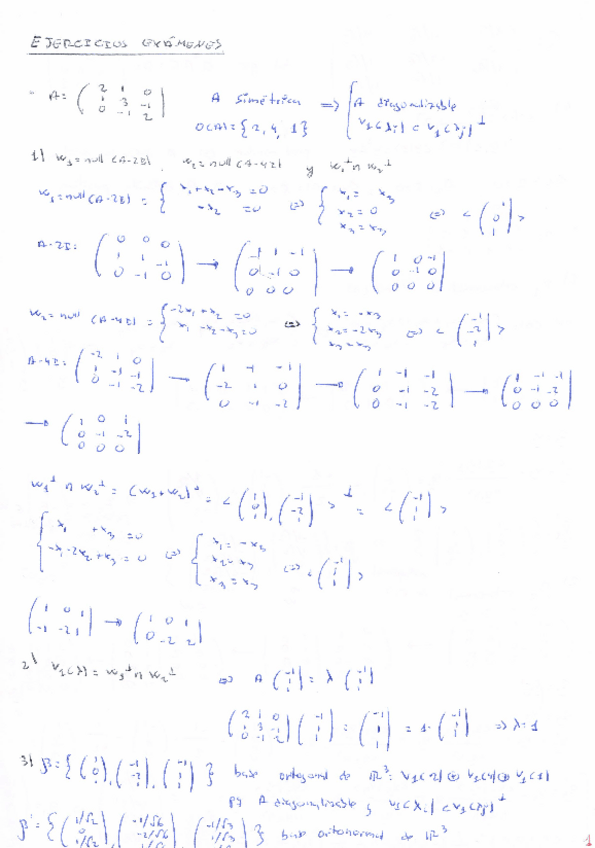 EJERCICIOS EXÁMENES
A = ( 2 1 0 / 1 3 -1 / 0 -1 2 ) A simétrica => { A diagonalizable
σ(A) = {2, 4, 1} V1(λi) ⊂ V1(λj)⊥
1) W1 = null (A-2I), W2 = null (A-4I) y W1⊥ ∩ W2⊥
W1 = null (A-2I) = { x1+x2-x3 = 0 / -x2 = 0 <=> { x1 = x3 / x2 = 0 / x3 = x3 <=> < ( 1 / 0 / 1 ) >
A-2I: ( 0 0 0 / 1 1 -1 / 0 -1 0 ) → ( 1 1 -1 / 0 -1 0 / 0 0 0 ) → ( 1 0 -1 / 0 -1 0 / 0 0 0 )
W2 = null (A-4I) = { -2x1+x2 = 0 / x1-x2-x3 = 0 <=> { x1 = -x3 / x2 = -2x3 / x3 = x3 <=> < ( -1 / -2 / 1 ) >
A-4I: ( -2 1 0 / 1 -1 -1 / 0 -1 -2 ) → ( 1 -1 -1 / -2 1 0 / 0 -1 -2 ) → ( 1 -1 -1 / 0 -1 -2 / 0 -1 -2 ) → ( 1 -1 -1 / 0 -1 -2 / 0 0 0 )
→ ( 1 0 1 / 0 -1 -2 / 0 0 0 )
W1⊥ ∩ W2⊥ = (W1+W2)⊥ = < ( 1 / 0 / 1 ), ( -1 / -2 / 1 ) >⊥ = < ( -1 / 1 / 1 ) >
{ x1 + x3 = 0 / -x1-2x2+x3 = 0 <=> { x1 = -x3 / x2 = x3 / x3 = x3 <=> < ( -1 / 1 / 1 ) >
( 1 0 1 / -1 -2 1 ) → ( 1 0 1 / 0 -2 2 )
2) V1(λ) = W1⊥ ∩ W2⊥ <=> A ( -1 / 1 / 1 ) = λ ( -1 / 1 / 1 )
( 2 1 0 / 1 3 -1 / 0 -1 2 ) ( -1 / 1 / 1 ) = ( -1 / 1 / 1 ) = 1· ( -1 / 1 / 1 ) => λ = 1
3) β = { ( 1 / 0 / 1 ), ( -1 / -2 / 1 ), ( -1 / 1 / 1 ) } base ortogonal de ℝ³: V1(2) ⊕ V1(4) ⊕ V1(1)
pq A diagonalizable y V1(λi) ⊂ V1(λj)⊥
β' = { ( 1/√2 / 0 ), ( -1/√6 / -2/√6 ), ( -1/√3 / 1/√3 ) } base ortonormal de ℝ³
1